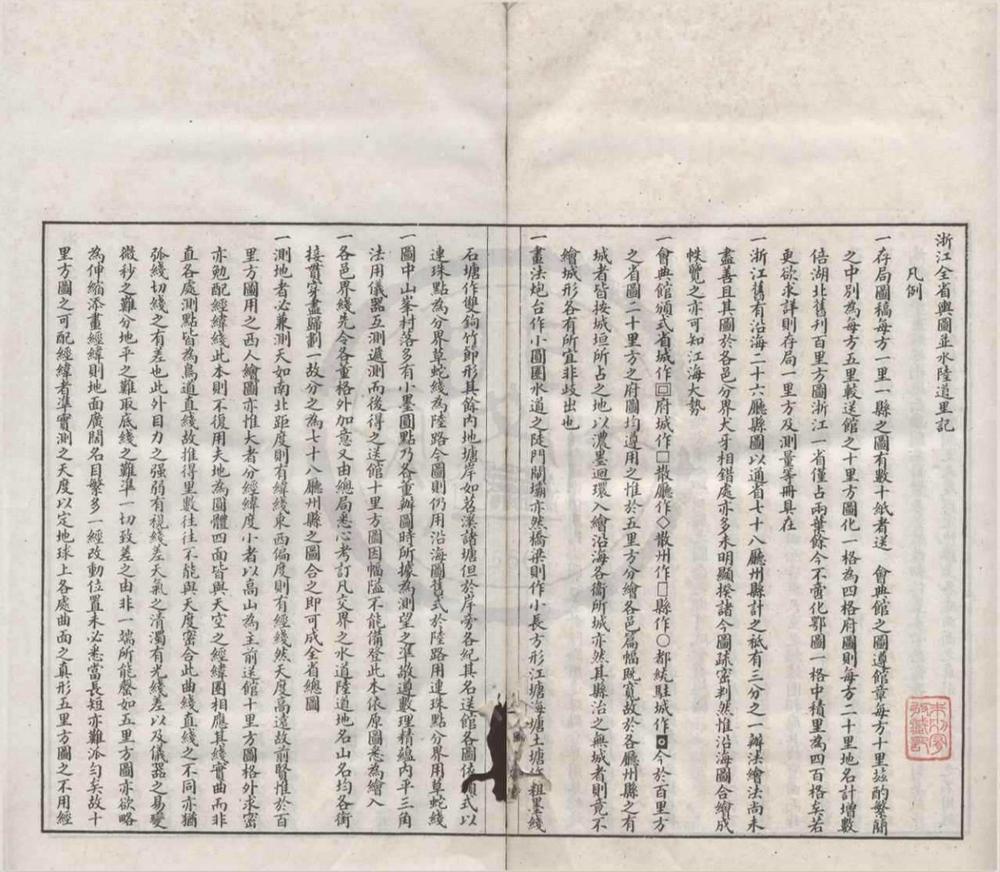 浙江全省輿圖並水陸道里記
凡例
一存局圖稿每方一里一縣之圖有數十紙者送　會典館之圖遵館章每方十里玆酌繁簡
之中別為每方五里較送館之十里方圖化一格為四格府圖則每方二十里地名計增數
倍湖北舊刊百里方圖浙江一省僅占兩葉餘今不啻化鄂圖一格中積里為四百格矣若
更欲求詳則存局一里方及測量等冊具在
一浙江舊有沿海二十六廳縣圖以通省七十八廳州縣計之祗有三分之一辦法繪法尚未
盡善且其圖於各邑分界犬牙相錯處亦多未明顯揆諸今圖疏密判然惟沿海圖合繪成
帙覽之亦可知江海大勢
一會典館頒式省城作回府城作□散廳作◇散州作▯縣作○都統駐城作◘今於百里方
之省圖二十里方之府圖均遵用之惟於五里方分繪各邑篇幅既寬故於各廳州縣之有
城者皆按城垣所占之地以濃墨迴環入繪沿海各衞所城亦然其縣治之無城者則竟不
繪城形各有所宜非歧出也
一畫法炮台作小圓圈水道之陡門閘壩亦然橋梁則作小長方形江塘海塘土塘作粗墨綫
石塘作雙鉤竹節形其餘內地塘岸如苕溪諸塘但於岸旁各紀其名送館各圖依頒式以
連珠點為分界草蛇綫為陸路今圖則仍用沿海圖舊式於陸路用連珠點分界用草蛇綫
一圖中山峯村落多有小墨圓點乃各董辦圖時所據為測望之準敬遵數理精蘊內平三角
法用儀器互測遞測而後得之送館十里方圖因幅隘不能備登此本依原圖悉為繪入
一各邑界綫先令各董格外加意又由總局悉心考訂凡交界之水道陸道地名山名均各銜
接貫穿盡歸劃一故分之為七十八廳州縣之圖合之即可成全省總圖
一測地者必兼測天如南北距度則有緯綫東西偏度則有經綫然天度高遠故前賢惟於百
里方圖用之西人繪圖亦惟大者分經緯度小者以高山為主前送館十里方圖格外求密
亦勉配經緯綫此本則不復用夫地為圓體四面皆與天空之經緯圈相應其綫實曲而非
直各處測點皆為鳥道直綫故推得里數往往不能與天度密合此曲綫直綫之不同亦猶
弧綫切綫之有差也此外目力之强弱有視綫差天氣之清濁有光綫差以及儀器之易變
微秒之難分地平之難取底綫之難準一切致差之由非一端所能罄如五里方圖亦欲略
為伸縮添畫經緯則地面廣闊名目繁多一經改動位置未必悉當長短亦難派勻矣故十
里方圖之可配經緯者準實測之天度以定地球上各處曲面之真形五里方圖之不用經